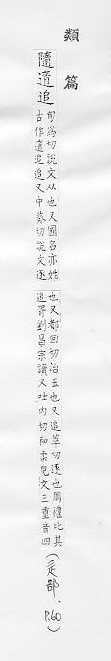 類篇
隨𨔶追
旬為切說文从也又國名亦姓
古作𨔶追追又中葵切說文逐
也又都回切治玉也又追萃切逐也周禮比其
追胥劉昌宗讀又
內切
文三重音四
(辵部，P.60)